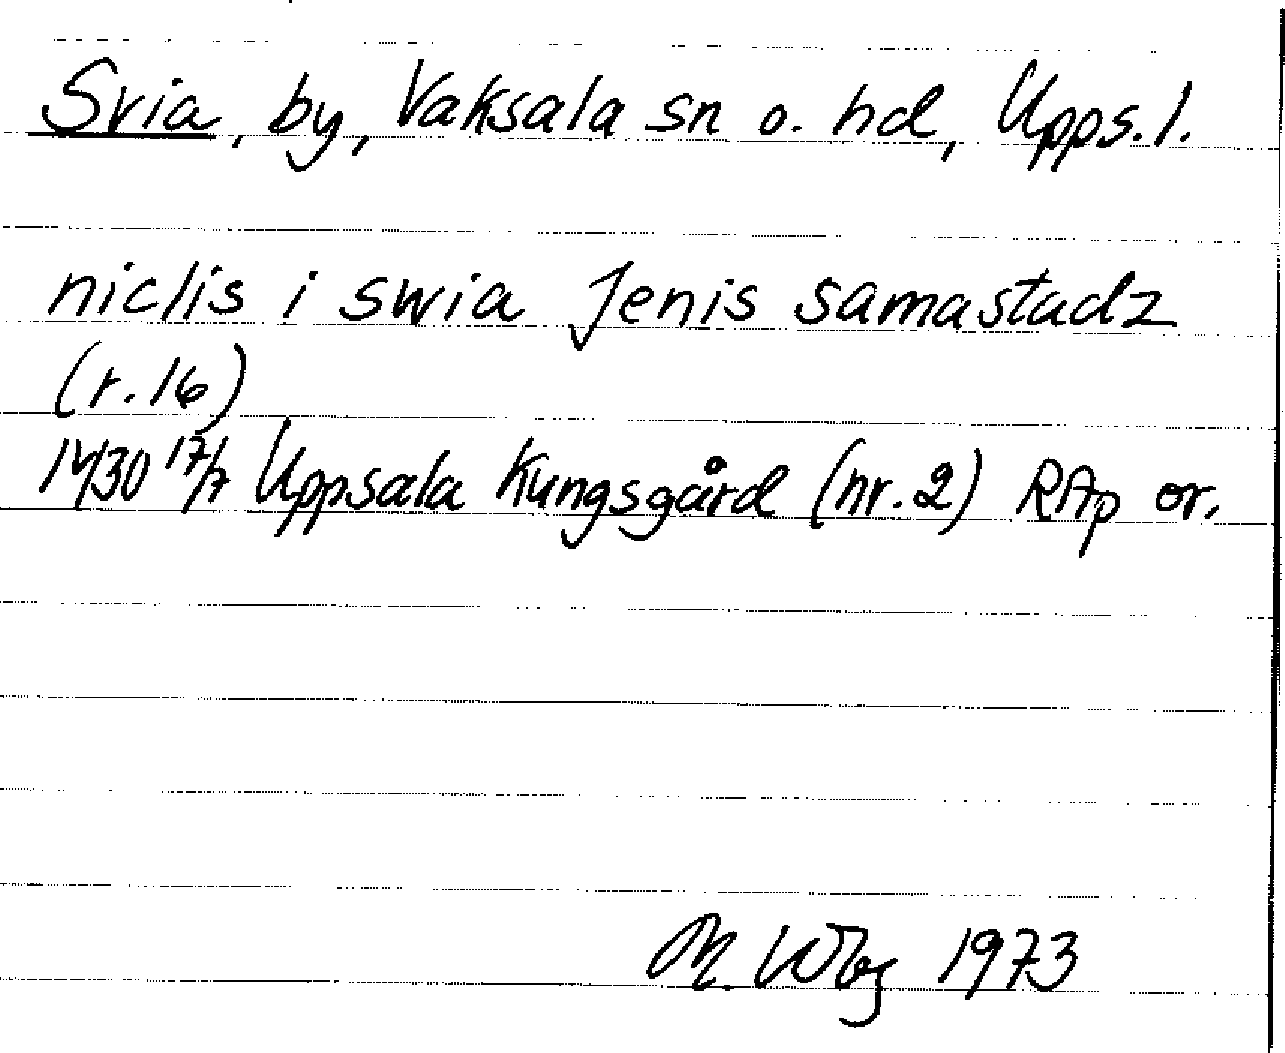 Svia, by, Vaksala sn o. hd, Upps. l.
niclis i swia Jenis samastadz
(r. 16)
1430 17/7 Uppsala Kungsgård (nr. 2) RAp or.
M. Wbg 1973